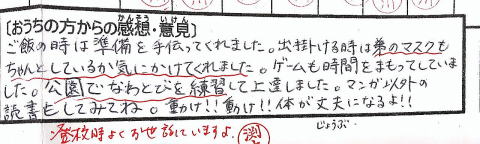 [おうちの方からの感想・意見]
かんそう いけん
ご飯の時は準備を手伝ってくれました。出掛ける時は弟のマスクも
ちゃんとしているか気にかけてくれました。ゲームも時間をまもってしていま
した。公園でなわとびを練習して上達しました。マンガ以外の
読書もしてみてね。動け!!動け!!体が丈夫になるよ!!
じょうぶ
登校時よくお世話していますよ。